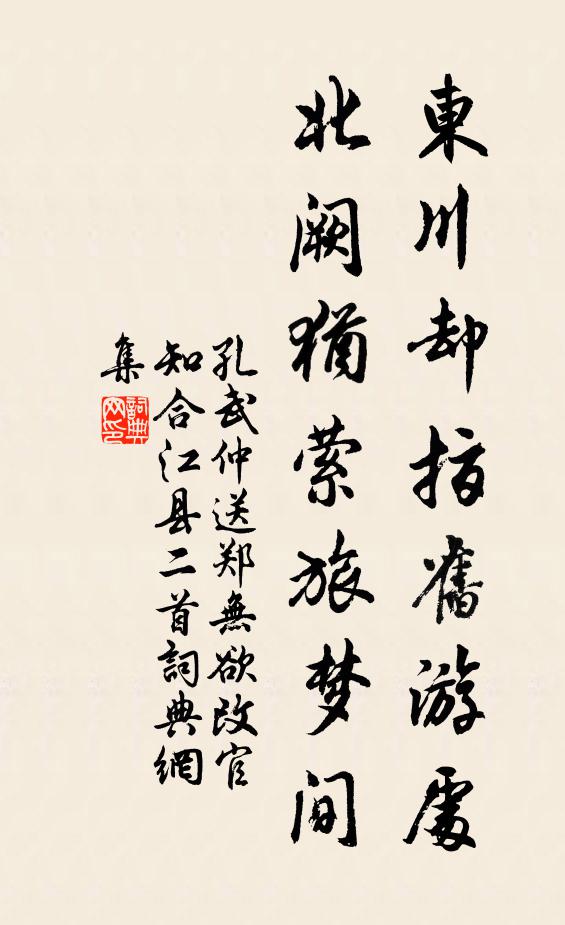 東川却指舊游處
北阙猶萦旅梦间
孔武仲送郑無欲改官
知合江县二首詞典網
集
詞典
网印